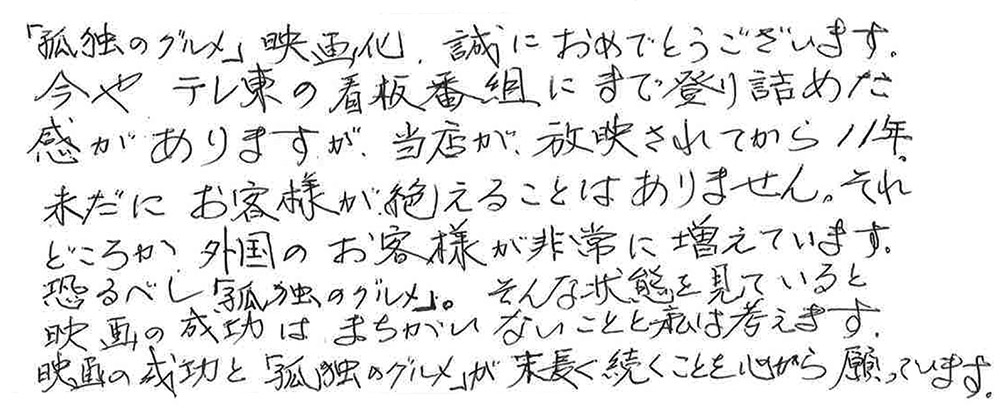 「孤独のグルメ」映画化、誠におめでとうございます。
今や テレ東の看板番組にまで登り詰めた
感がありますが、当店が、放映されてから11年。
未だに お客様が絶えることはありません。それ
どころか、外国のお客様が非常に増えています。
恐るべし「孤独のグルメ」。そんな状態を見ていると
映画の成功は まちがいないことと私は考えます。
映画の成功と「孤独のグルメ」が末長く続くことを心から願っています。